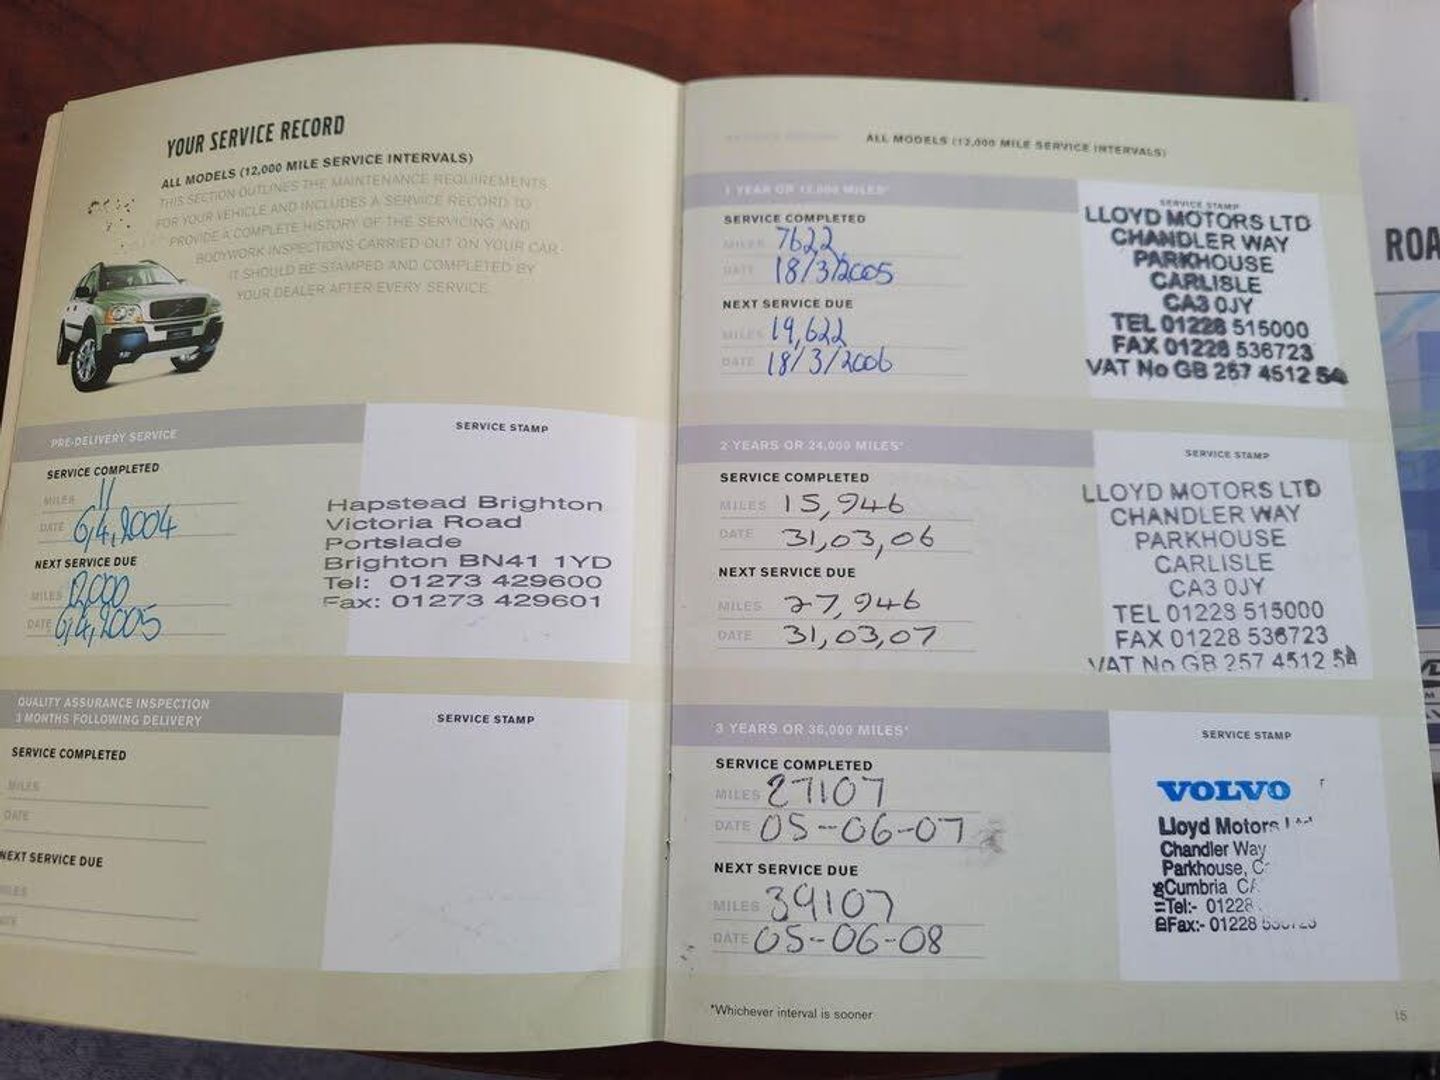 YOUR SERVICE RECORD
ALL MODELS (12,000 MILE SERVICE INTERVALS)
THIS SECTION OUTLINES THE MAINTENANCE REQUIREMENTS
FOR YOUR VEHICLE AND INCLUDES A SERVICE RECORD TO
PROVIDE A COMPLETE HISTORY OF THE SERVICING AND
BODYWORK INSPECTIONS CARRIED OUT ON YOUR CAR.
IT SHOULD BE STAMPED AND COMPLETED BY
YOUR DEALER AFTER EVERY SERVICE.
PRE-DELIVERY SERVICE
SERVICE STAMP
SERVICE COMPLETED
MILES 11
DATE 6,4,2004
NEXT SERVICE DUE
MILES 12000
DATE 6,4,2005
Hapstead Brighton
Victoria Road
Portslade
Brighton BN41 1YD
Tel: 01273 429600
Fax: 01273 429601
QUALITY ASSURANCE INSPECTION
3 MONTHS FOLLOWING DELIVERY
SERVICE STAMP
SERVICE COMPLETED
MILES
DATE
NEXT SERVICE DUE
MILES
DATE
ALL MODELS (12,000 MILE SERVICE INTERVALS)
1 YEAR OR 12,000 MILES*
SERVICE COMPLETED
MILES 7622
DATE 18/3/2005
NEXT SERVICE DUE
MILES 19,622
DATE 18/3/2006
SERVICE STAMP
LLOYD MOTORS LTD
CHANDLER WAY
PARKHOUSE
CARLISLE
CA3 0JY
TEL 01228 515000
FAX 01228 536723
VAT No GB 257 4512 54
2 YEARS OR 24,000 MILES*
SERVICE COMPLETED
MILES 15,946
DATE 31,03,06
NEXT SERVICE DUE
MILES 27,946
DATE 31,03,07
SERVICE STAMP
LLOYD MOTORS LTD
CHANDLER WAY
PARKHOUSE
CARLISLE
CA3 0JY
TEL 01228 515000
FAX 01228 536723
VAT No GB 257 4512 54
3 YEARS OR 36,000 MILES*
SERVICE COMPLETED
MILES 27107
DATE 05-06-07
NEXT SERVICE DUE
MILES 39107
DATE 05-06-08
SERVICE STAMP
VOLVO
Lloyd Motors
Chandler Way
Parkhouse,
Cumbria
Tel:- 01228
Fax:- 01228
*Whichever interval is sooner
15
ROA